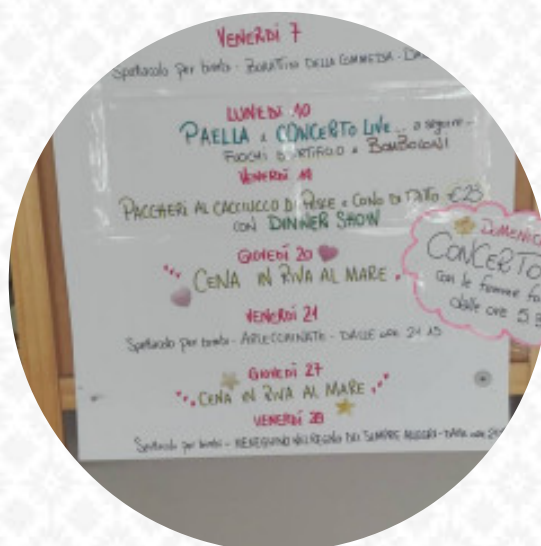 VENERDÌ 7
Spettacolo per bimbi - BURATTINI DELLA COMMEDIA -
LUNEDÌ 10
PAELLA e CONCERTO LIVE... a seguire -
FUOCHI D'ARTIFICIO e BOMBOLONI
VENERDÌ
PACCHERI AL CACCIUCCO DI PESCE e CONO DI FRITTO €25
CON DINNER SHOW
GIOVEDÌ 20
CENA IN RIVA AL MARE
VENERDÌ 21
Spettacolo per bimbi - ARLECCHINATE - DALLE ore 21.15
GIOVEDÌ 27
CENA IN RIVA AL MARE
VENERDÌ 28
Spettacolo per bimbi - NEL REGNO DEI SEMPRE ALLEGRI - DALLE ore
DOMENICA
CONCERTO
con le
dalle ore 5.3